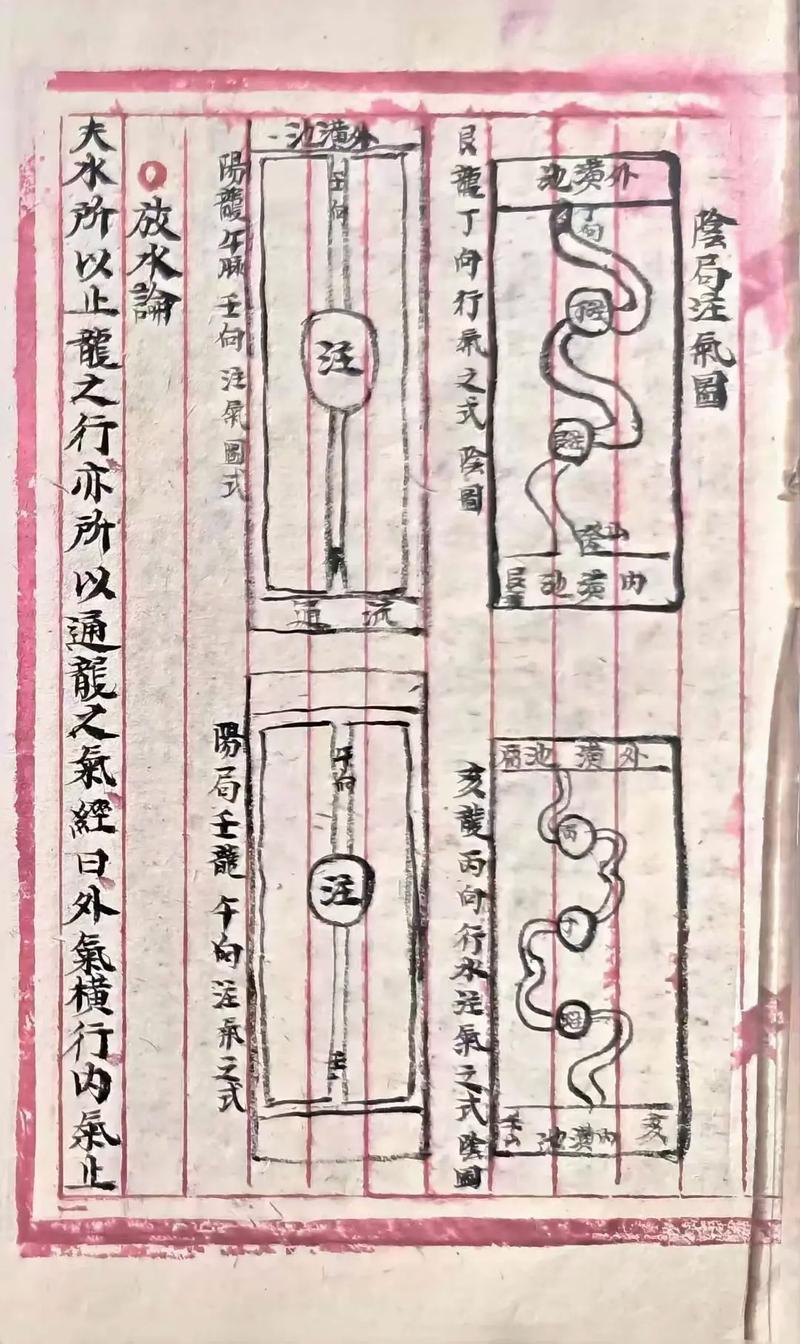 陰局注氣圖
外潢池
丁向
內潢池
艮龍丁向行氣之式 陰圖
外潢池
丙
內潢池
亥
亥龍丙向行水注氣之式 陰圖
外潢池
壬向
注
流通
陽龍午脈壬向注氣圖式
午向
注
壬
陽局壬龍午向注氣之式
放水論
夫水所以止龍之行亦所以通龍之氣經曰外氣橫行內氣止